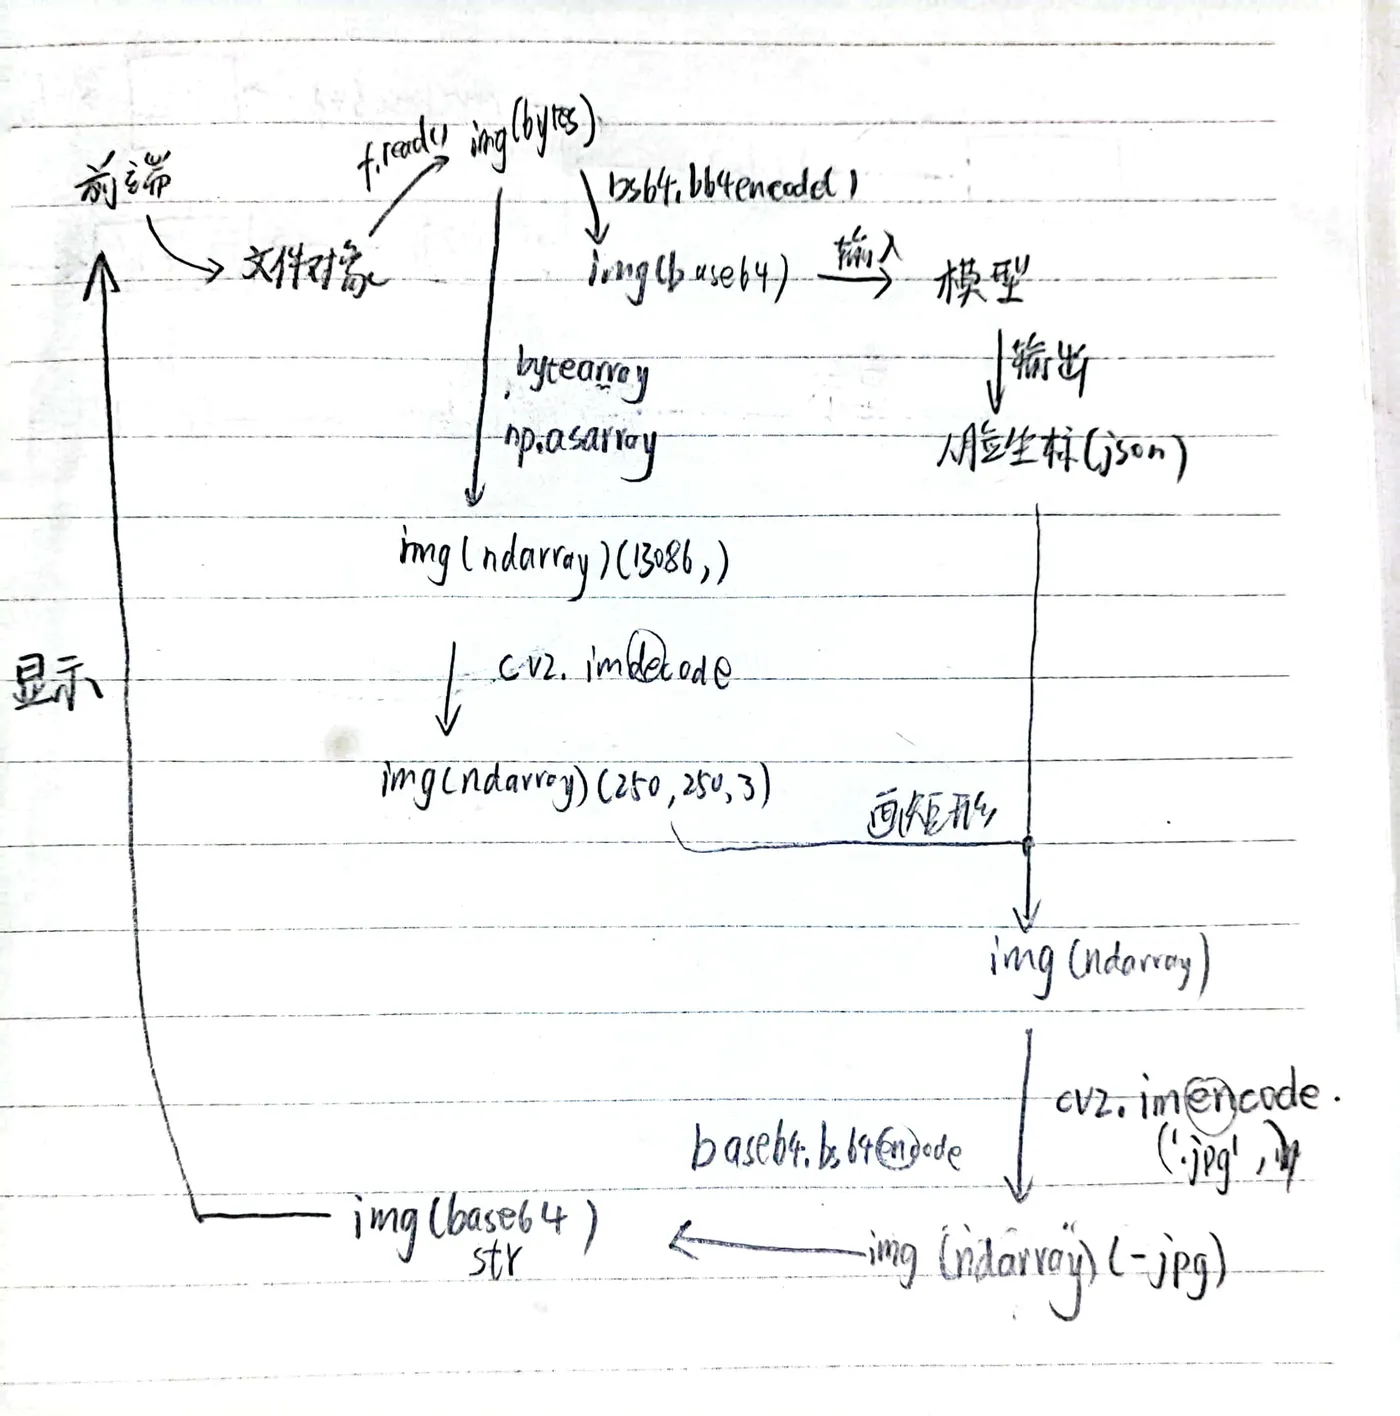 f.read()
img(bytes)
前端
bs64.b64encode()
文件对象
img(base64)
输入
模型
输出
bytearray
np.asarray
人脸坐标(json)
img(ndarray)(13086,)
cv2.imdecode
显示
img(ndarray)(250,250,3)
画矩形
img(ndarray)
cv2.imencode.
('.jpg',
base64.bs64encode
img(base64)
str
img(ndarray)(-jpg)